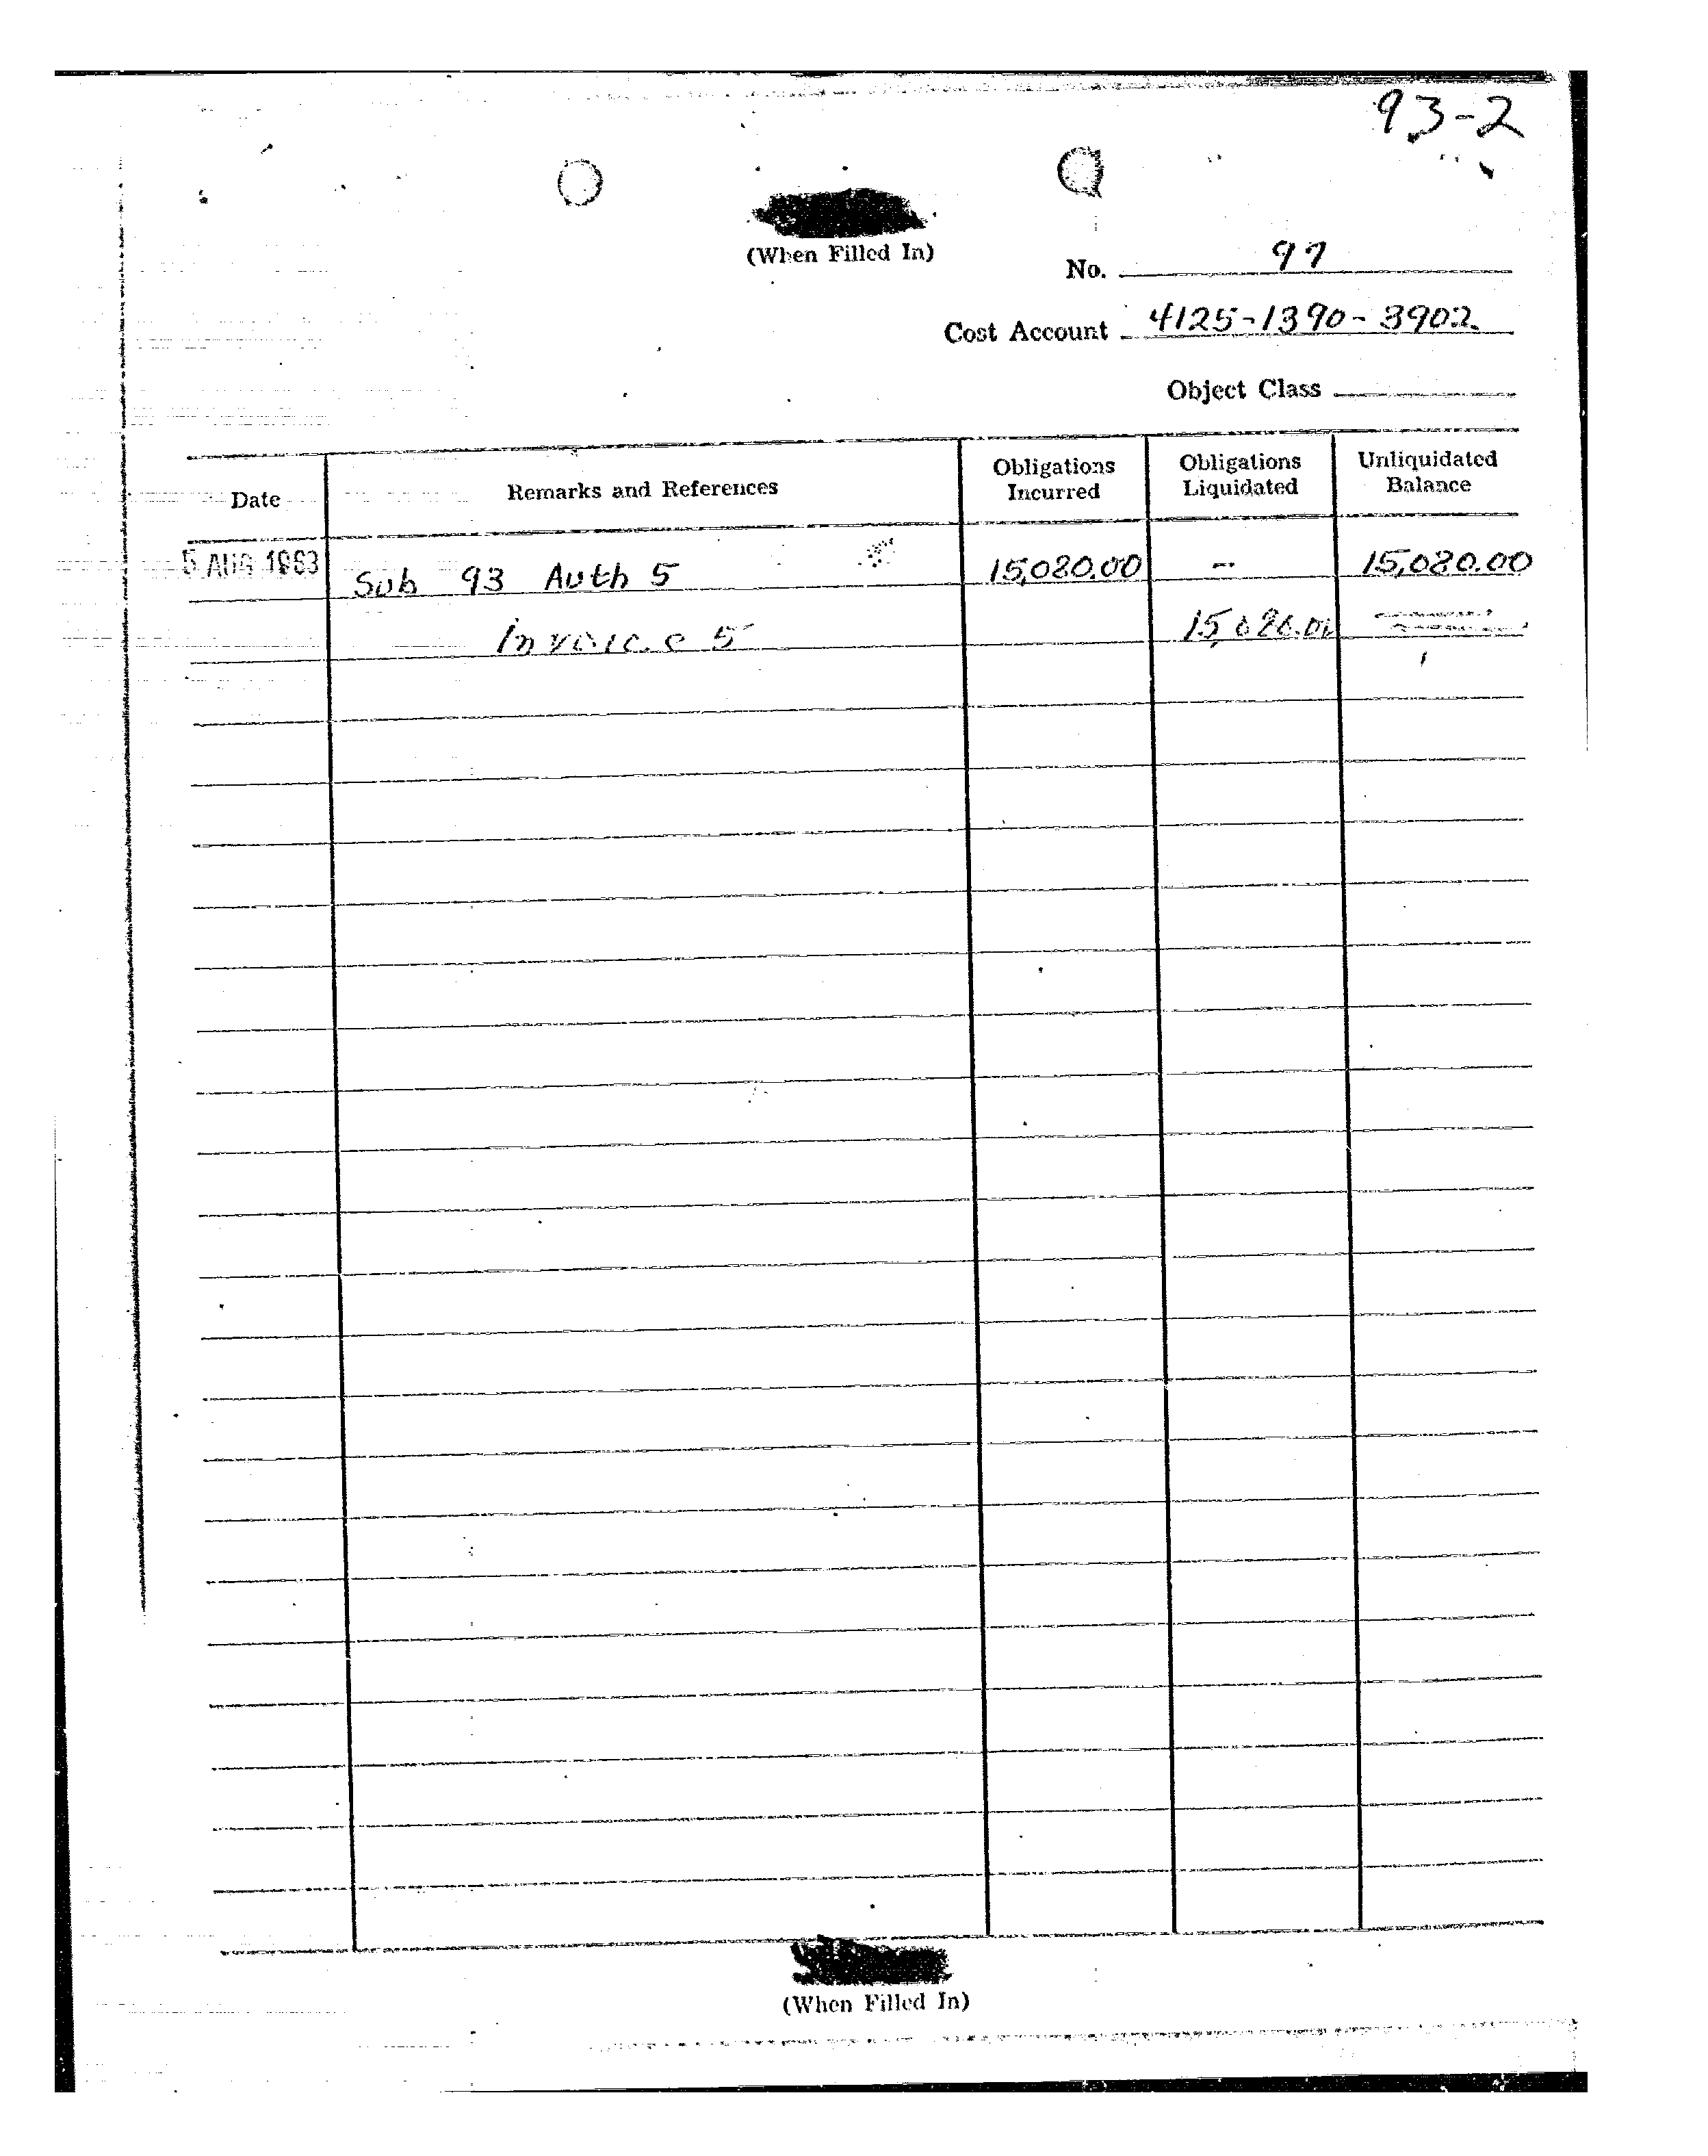 93-2
(When Filled In)
No. 97
Cost Account 4125-1390-3902
Object Class
Date Remarks and References Obligations Incurred Obligations Liquidated Unliquidated Balance
5 AUG 1963 Sub 93 Auth 5 15,080.00 — 15,080.00
Invoice 5 15,080.00
(When Filled In)